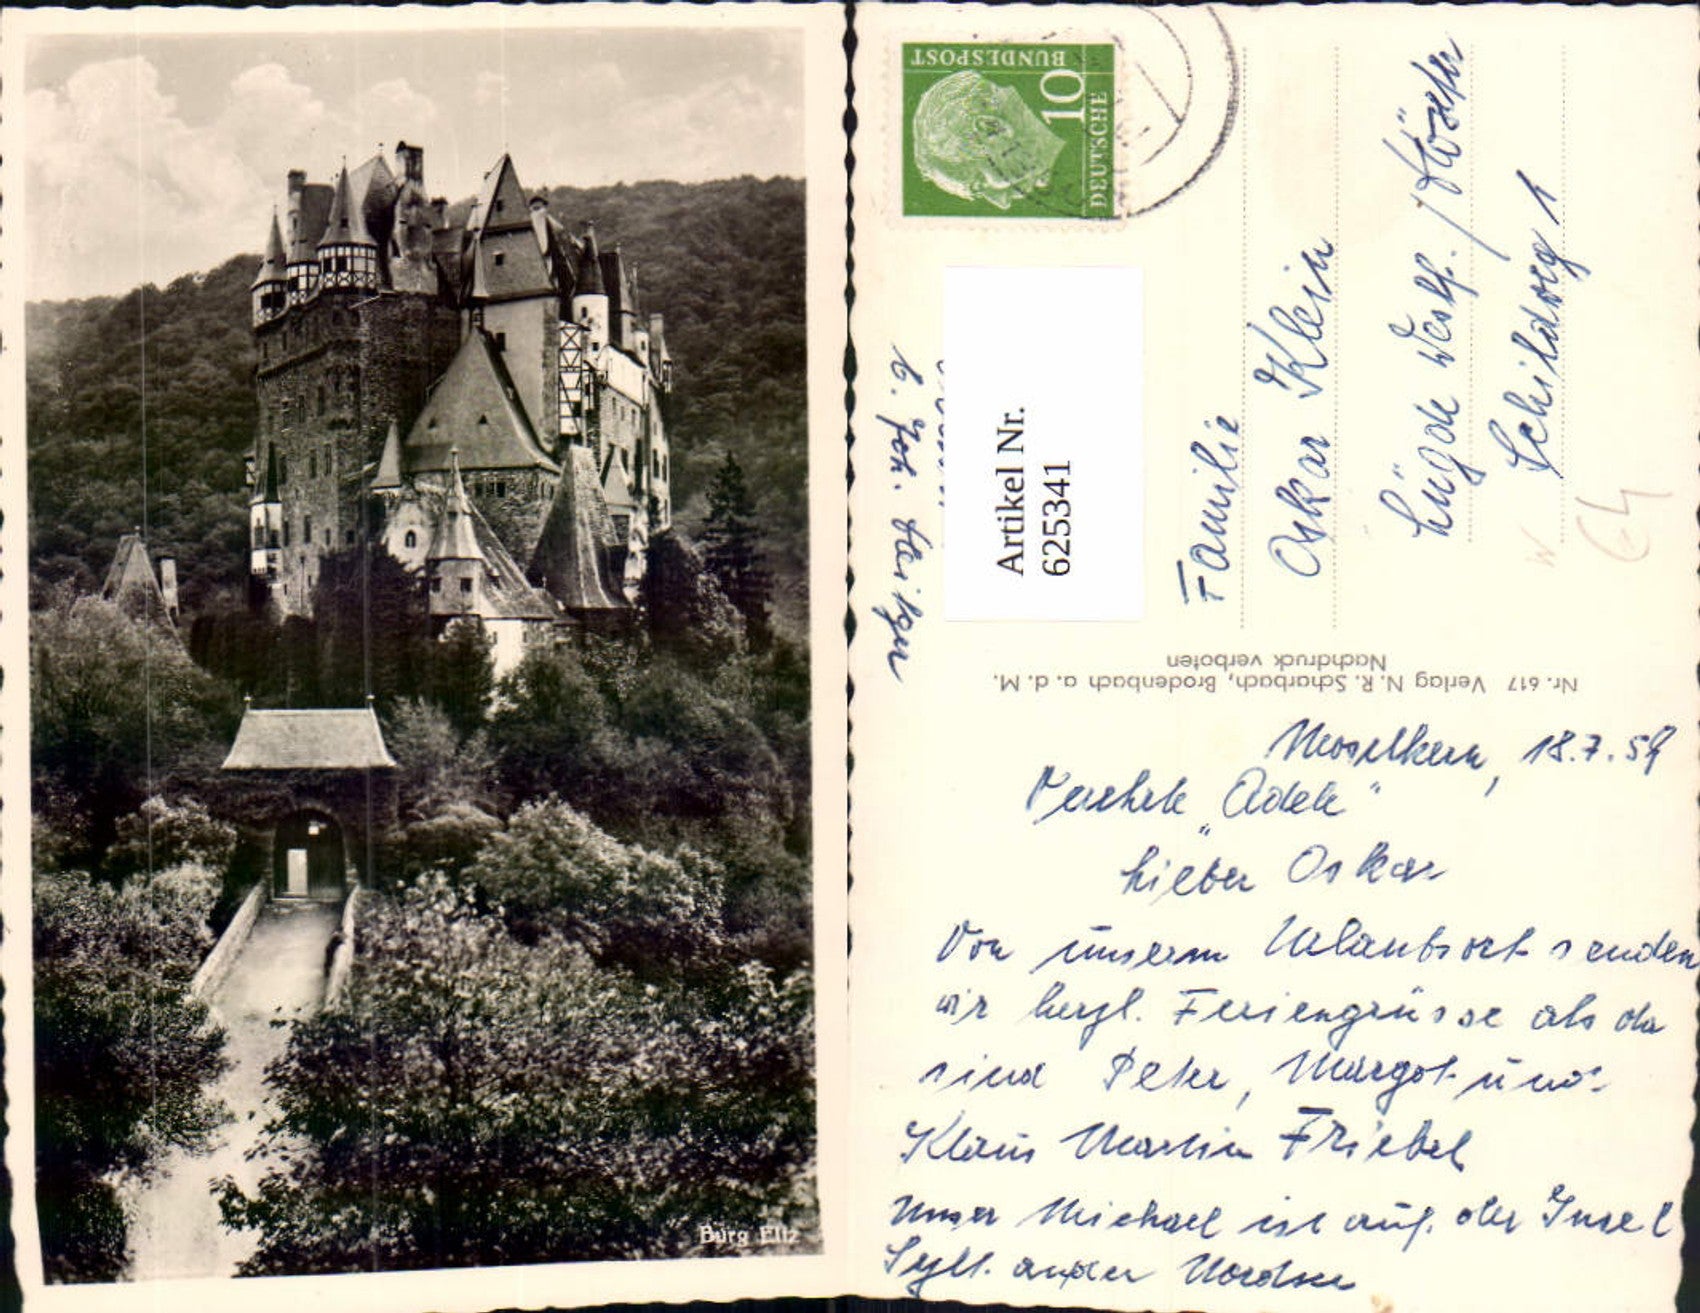 Burg Eltz
DEUTSCHE
BUNDESPOST
10
Artikel Nr.
625341
b. Joh.
Familie
Oskar Klein
Lügde Westf. / Höxter
Schildweg 1
Nr. 617 Verlag N. R. Scharbach, Brodenbach a. d. M.
Nachdruck verboten
Moselkern, 18.7.59
Verehrte „Adele"
Lieber Oskar
Von unserm Urlaubsort senden
wir herzl. Feriengrüsse als da
sind Peter, Margot und
Klaus Martin Friebel
Unser Michael ist auf der Insel
Sylt. an der Nordsee